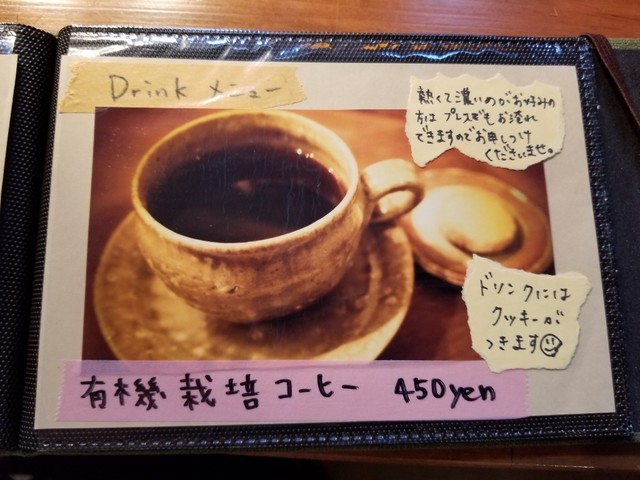 Drink メニュー
熱くて濃いのがお好みの
方は プレスでもお淹れ
できますのでお申しつけ
くださいませ。
ドリンクには
クッキーが
つきます
有機栽培コーヒー 450yen